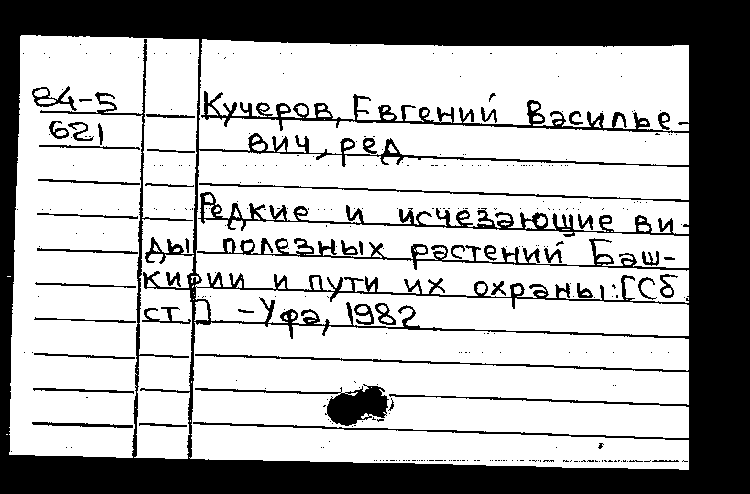 84-5
621
Кучеров, Евгений Василье-
вич, ред.
Редкие и исчезающие ви-
ды полезных растений Баш-
кирии и пути их охраны: [Сб.
ст.] – Уфа, 1982